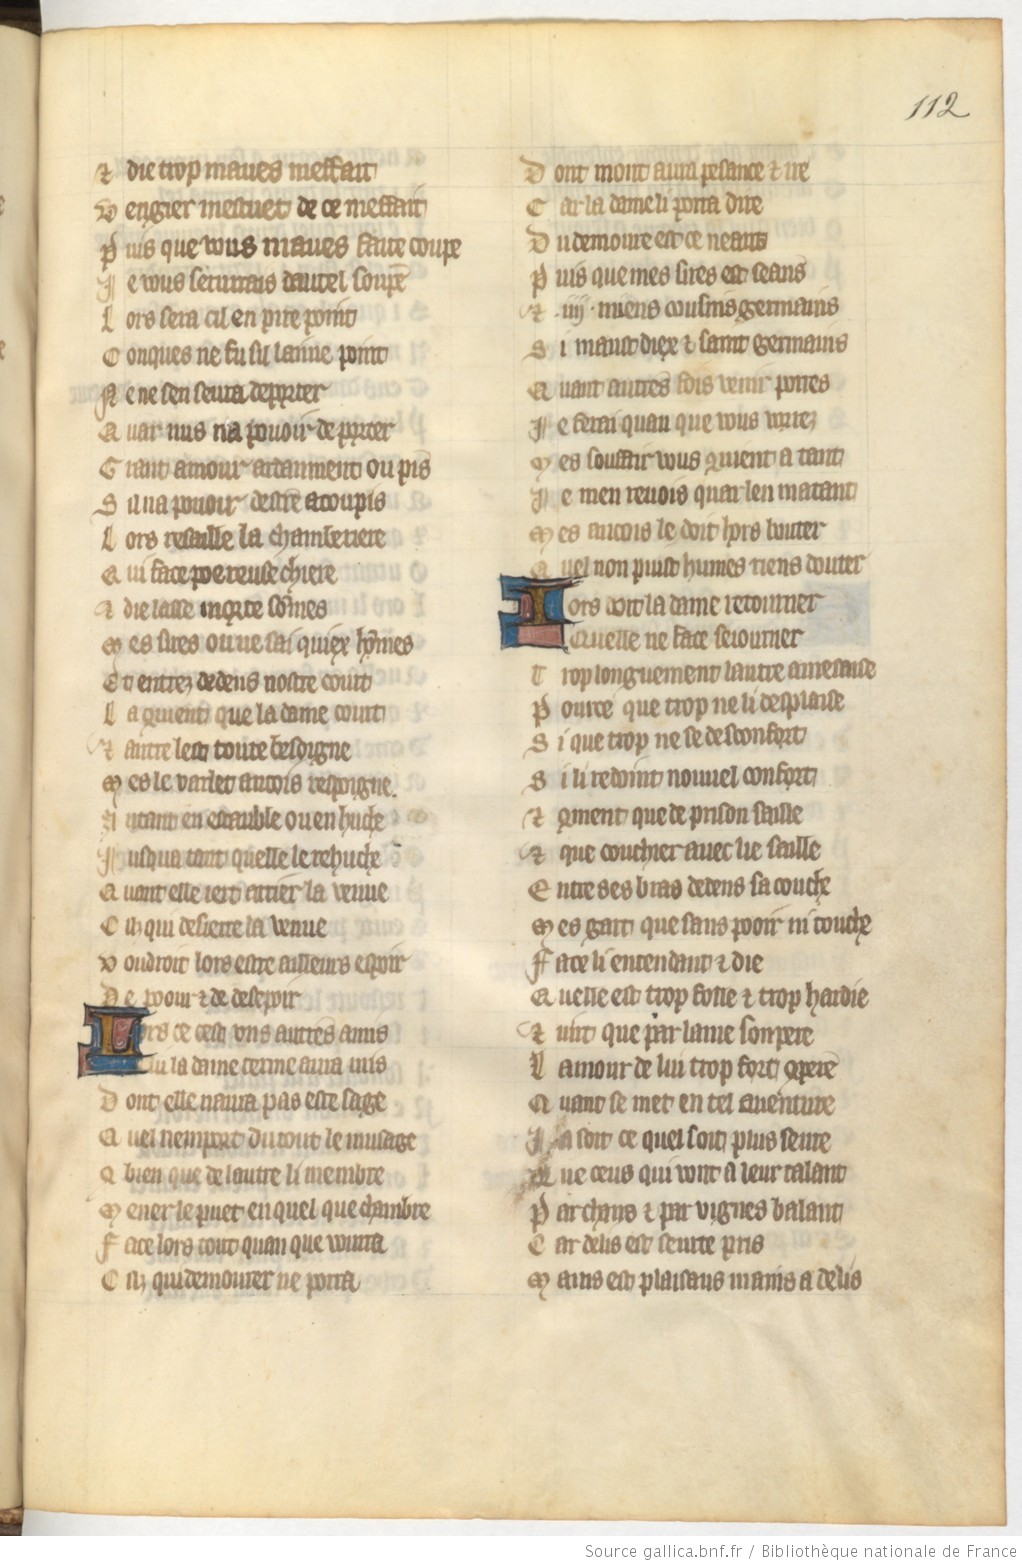 112
⁊ die trop maues meffait
Vengier mestuet de ce meffait
Puis que vous maues faite coupe
Je vous seruirais dautel soupe
Lors sera cil en pire point
Conques ne fu sil laime point
Ne ne sen seura departer
Auar nus na pouoir de parter
Grant amour ardanment ou pis
Sil na pouoir destre acoupis
Lors resaille la chamberiere
Qui face poereuse chiere
⁊ die lasse morte sommes
Mes sires ou ne sai quiex hommes
Est entrez dedens nostre court
La conuient que la dame court
⁊ autre lest toute besoigne
Mes le varlet ancois respoigne
Autant en estauble ou en huche
Jusqua tant quelle le rehuche
Auant elle iert arrier la venue
Cilz qui desierre la venue
Voudroit lors estre ailleurs espoir
De poour ⁊ de desespoir
Lors ce cest vns autres amis
Cui la dame terme aura mis
Dont elle naura pas este sage
Quel nemport du tout le musage
⁊ bien que de lautre li membre
Mener le puet en quel que chambre
Face lors tout quan que vourra
Cilz qui demourer ne porra
Dont mont aura pesance ⁊ ire
Car la dame li porra dire
Du demoure est ce neans
Puis que mes sires est seans
⁊ .iiij. miens cousins germains
Si maust diex ⁊ saint germains
Quant autres fois venir porres
Je ferai quan que vous vorrez
Mes souffrir vous conuient a tant
Je men reuois quar len matant
Mes ancois le doit hors bouter
Quel non puist humes riens douter
Lors doit la dame retourner
Quelle ne face seiourner
Trop longuement lautre a mesaise
Pource que trop ne li desplaise
Si que trop ne se desconfort
Si li redoint nouuel confort
⁊ conuient que de prison saille
⁊ que couchier auec lie saille
Entre ses bras dedens sa couche
Mes gart que sans poor ni touche
Face li entendant ⁊ die
Quelle est trop fole ⁊ trop hardie
⁊ iurt que par lame son pere
Lamour de lui trop fort compere
Quant se met en tel auenture
Ja soit ce quel soit plus seure
Que ceus qui vont a leur talant
Par chans ⁊ par vignes balant
Car delis est seurte pris
Mains est plaisans mains a delis
Source gallica.bnf.fr / Bibliothèque nationale de France